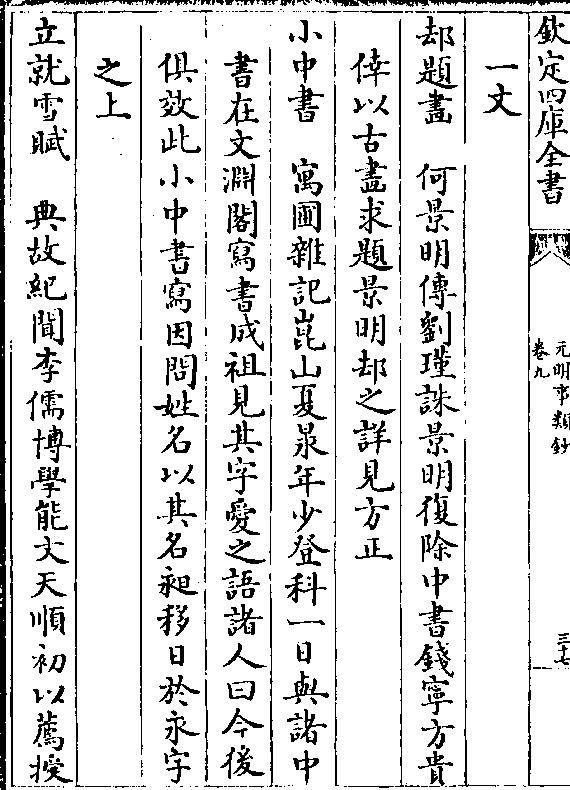 欽定四庫全書
元明事類鈔
卷九
三十七
一文
却題畫　何景明傳劉瑾誅景明復除中書錢寧方貴
倖以古畫求題景明却之詳見方正
小中書　寓圃雜記崑山夏㫤年少登科一日與諸中
書在文淵閣寫書成祖見其字愛之語諸人曰今後
俱效此小中書寫因問姓名以其名昶移日於永字
之上
立就雪賦　典故紀聞李儒博學能文天順初以薦授